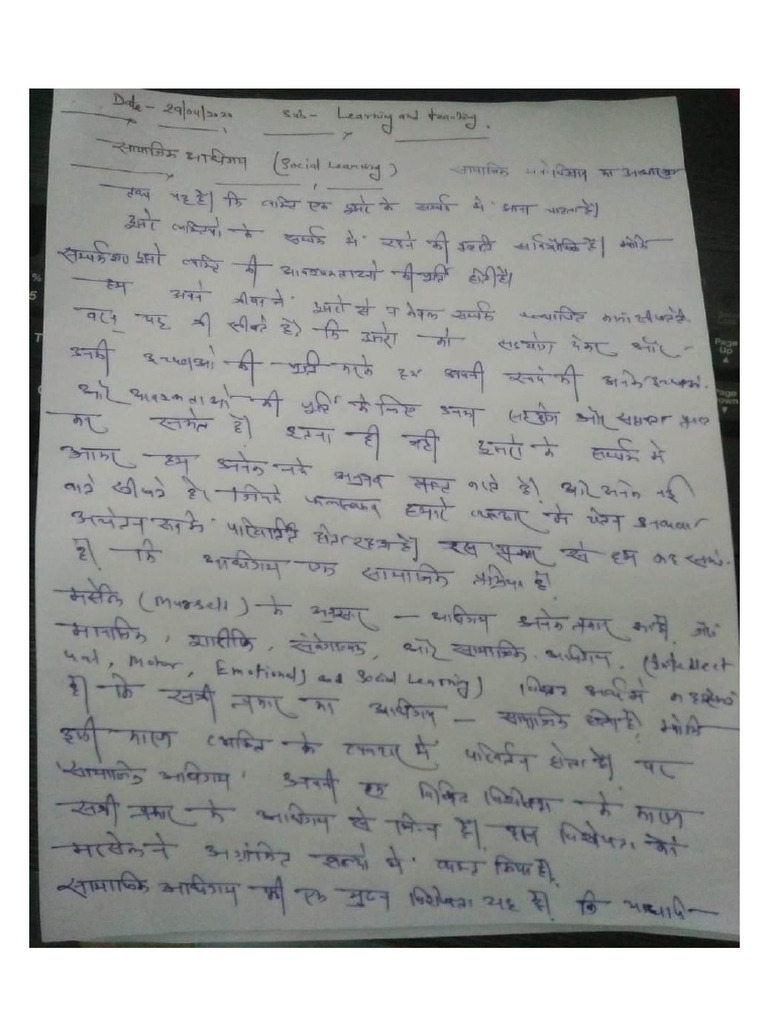 Date - 29/04/2020 Sub - Learning and teaching.
सामाजिक अधिगम (Social Learning) सामाजिक मनोविज्ञान का आधारभूत
तथ्य यह है। कि व्यक्ति एक दूसरे के सम्पर्क में आना चाहता है।
दूसरे व्यक्तियों के सम्पर्क में रहने की प्रवृति सार्वभौमिक है। क्योंकि
सम्पर्क द्वारा दूसरे व्यक्ति की आवश्यकताओं की पूर्ति होती है।
हम अपने जीवन में दूसरों से न केवल सम्पर्क स्थापित करना सीखते है।
वरन् यह भी सीखते है। कि दूसरों को सहयोग देकर और -
उनकी इच्छाओं की पूर्ति करके हम अपनी स्वयं की अनेक इच्छाओं
और आवश्यकताओं की पूर्ति के लिए उनका सहयोग और सहायता प्राप्त
कर सकते है। इतना ही नहीं दूसरों के सम्पर्क में
आकर हम अनेक नये अनुभव प्राप्त करते है। और अनेक नई
बातें सीखते है। जिनके फलस्वरूप हमारे व्यवहार में चेतन अथवा
अचेतन रूप में परिवर्तन होता रहता है। इस प्रकार से हम कह सकते
है। कि अधिगम एक सामाजिक प्रक्रिया है।
मर्सेल (Mursell) के अनुसार - अधिगम अनेक प्रकार का है। जैसे
मानसिक, शारीरिक, संवेगात्मक, और सामाजिक अधिगम, (Intellect
ual, Motor, Emotional, and Social Learning) विस्तृत अर्थ में कह सकते
है। कि सभी प्रकार का अधिगम - सामाजिक होता है। क्योंकि
इसी कारण व्यक्ति के व्यवहार में परिवर्तन होता है। पर
'सामाजिक अधिगम' अपनी एक निश्चित विशेषता के कारण
सभी प्रकार के अधिगम से भिन्न है। इस विशेषता को
मरसेल ने अग्रांकित शब्दों में व्यक्त किया है।
सामाजिक अधिगम की एक मुख्य विशेषता यह है। कि